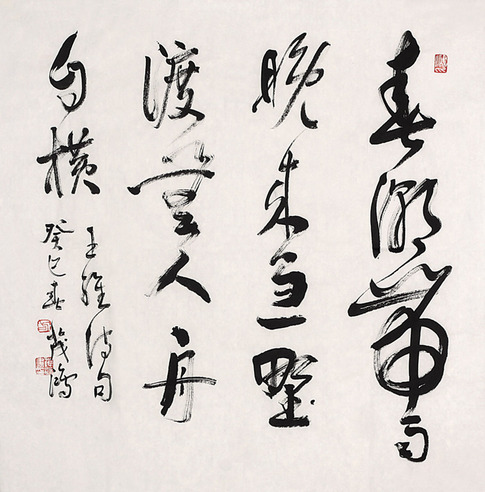 春潮帶雨
晚来急野
渡無人舟
自横
王維詩句
癸巳春